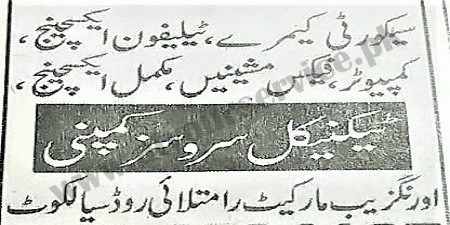 سیکورٹی کیمرے، ٹیلیفون ایکسچینج،
کمپیوٹر، فیکس مشینیں، مکمل ایکسچینج،
ٹیکنیکل سروسز کمپنی
اورنگزیب مارکیٹ رامتلائی روڈ سیالکوٹ